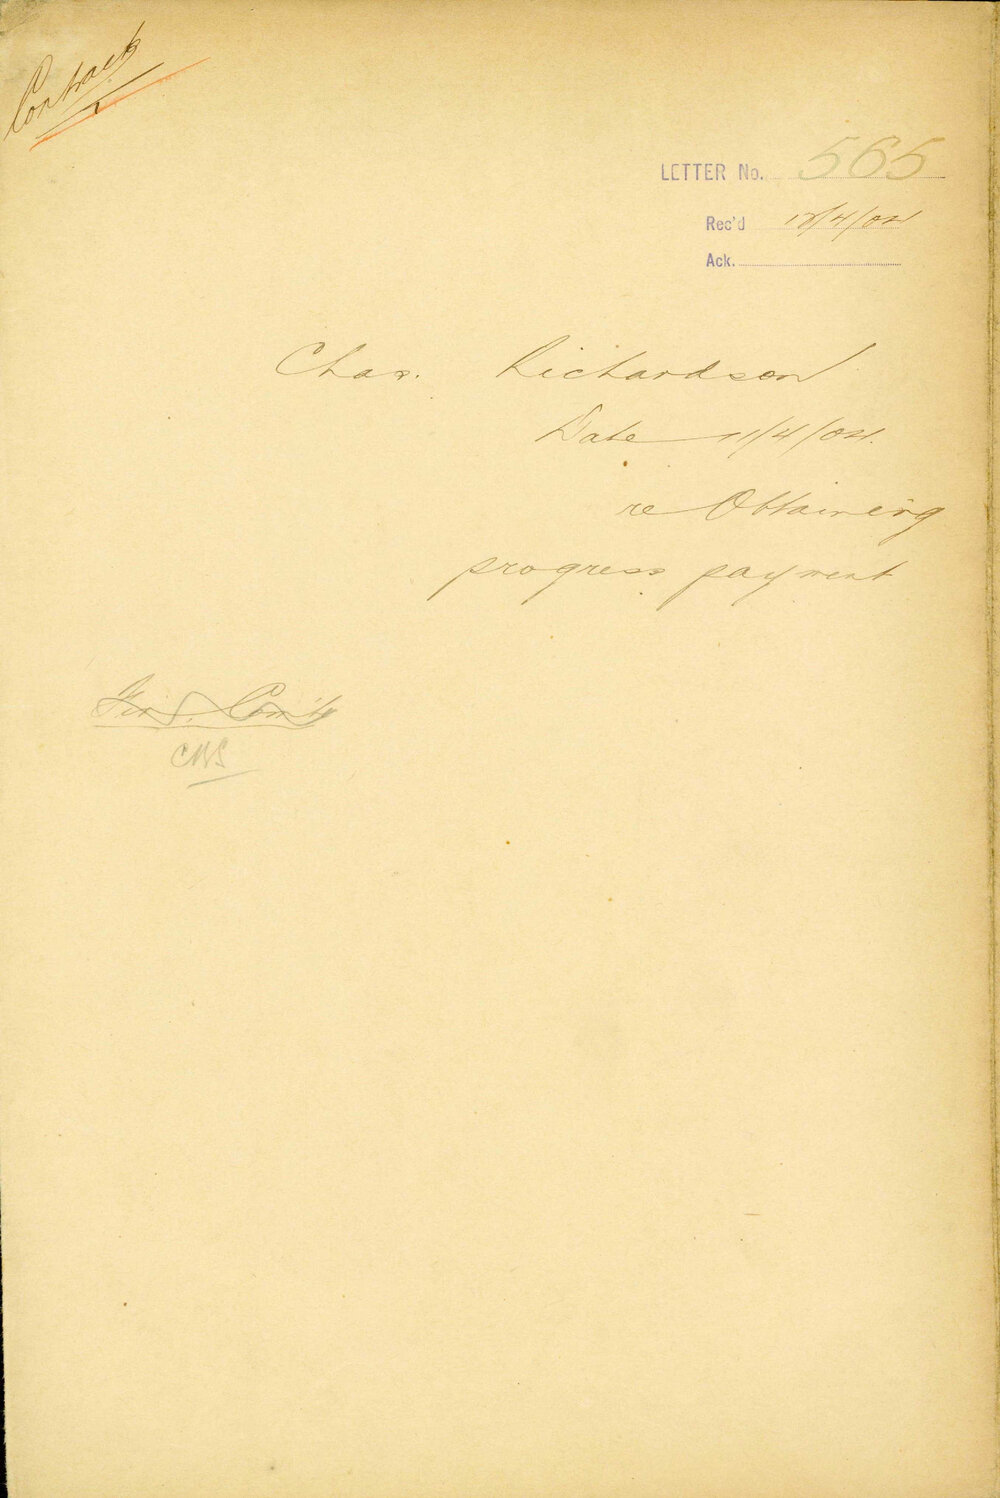 Contract
LETTER No. 565
Rec'd 12/4/04
Ack.
Chas. Richardson
Date 11/4/04.
re Obtaining
progress payment
Fin. Com'ty